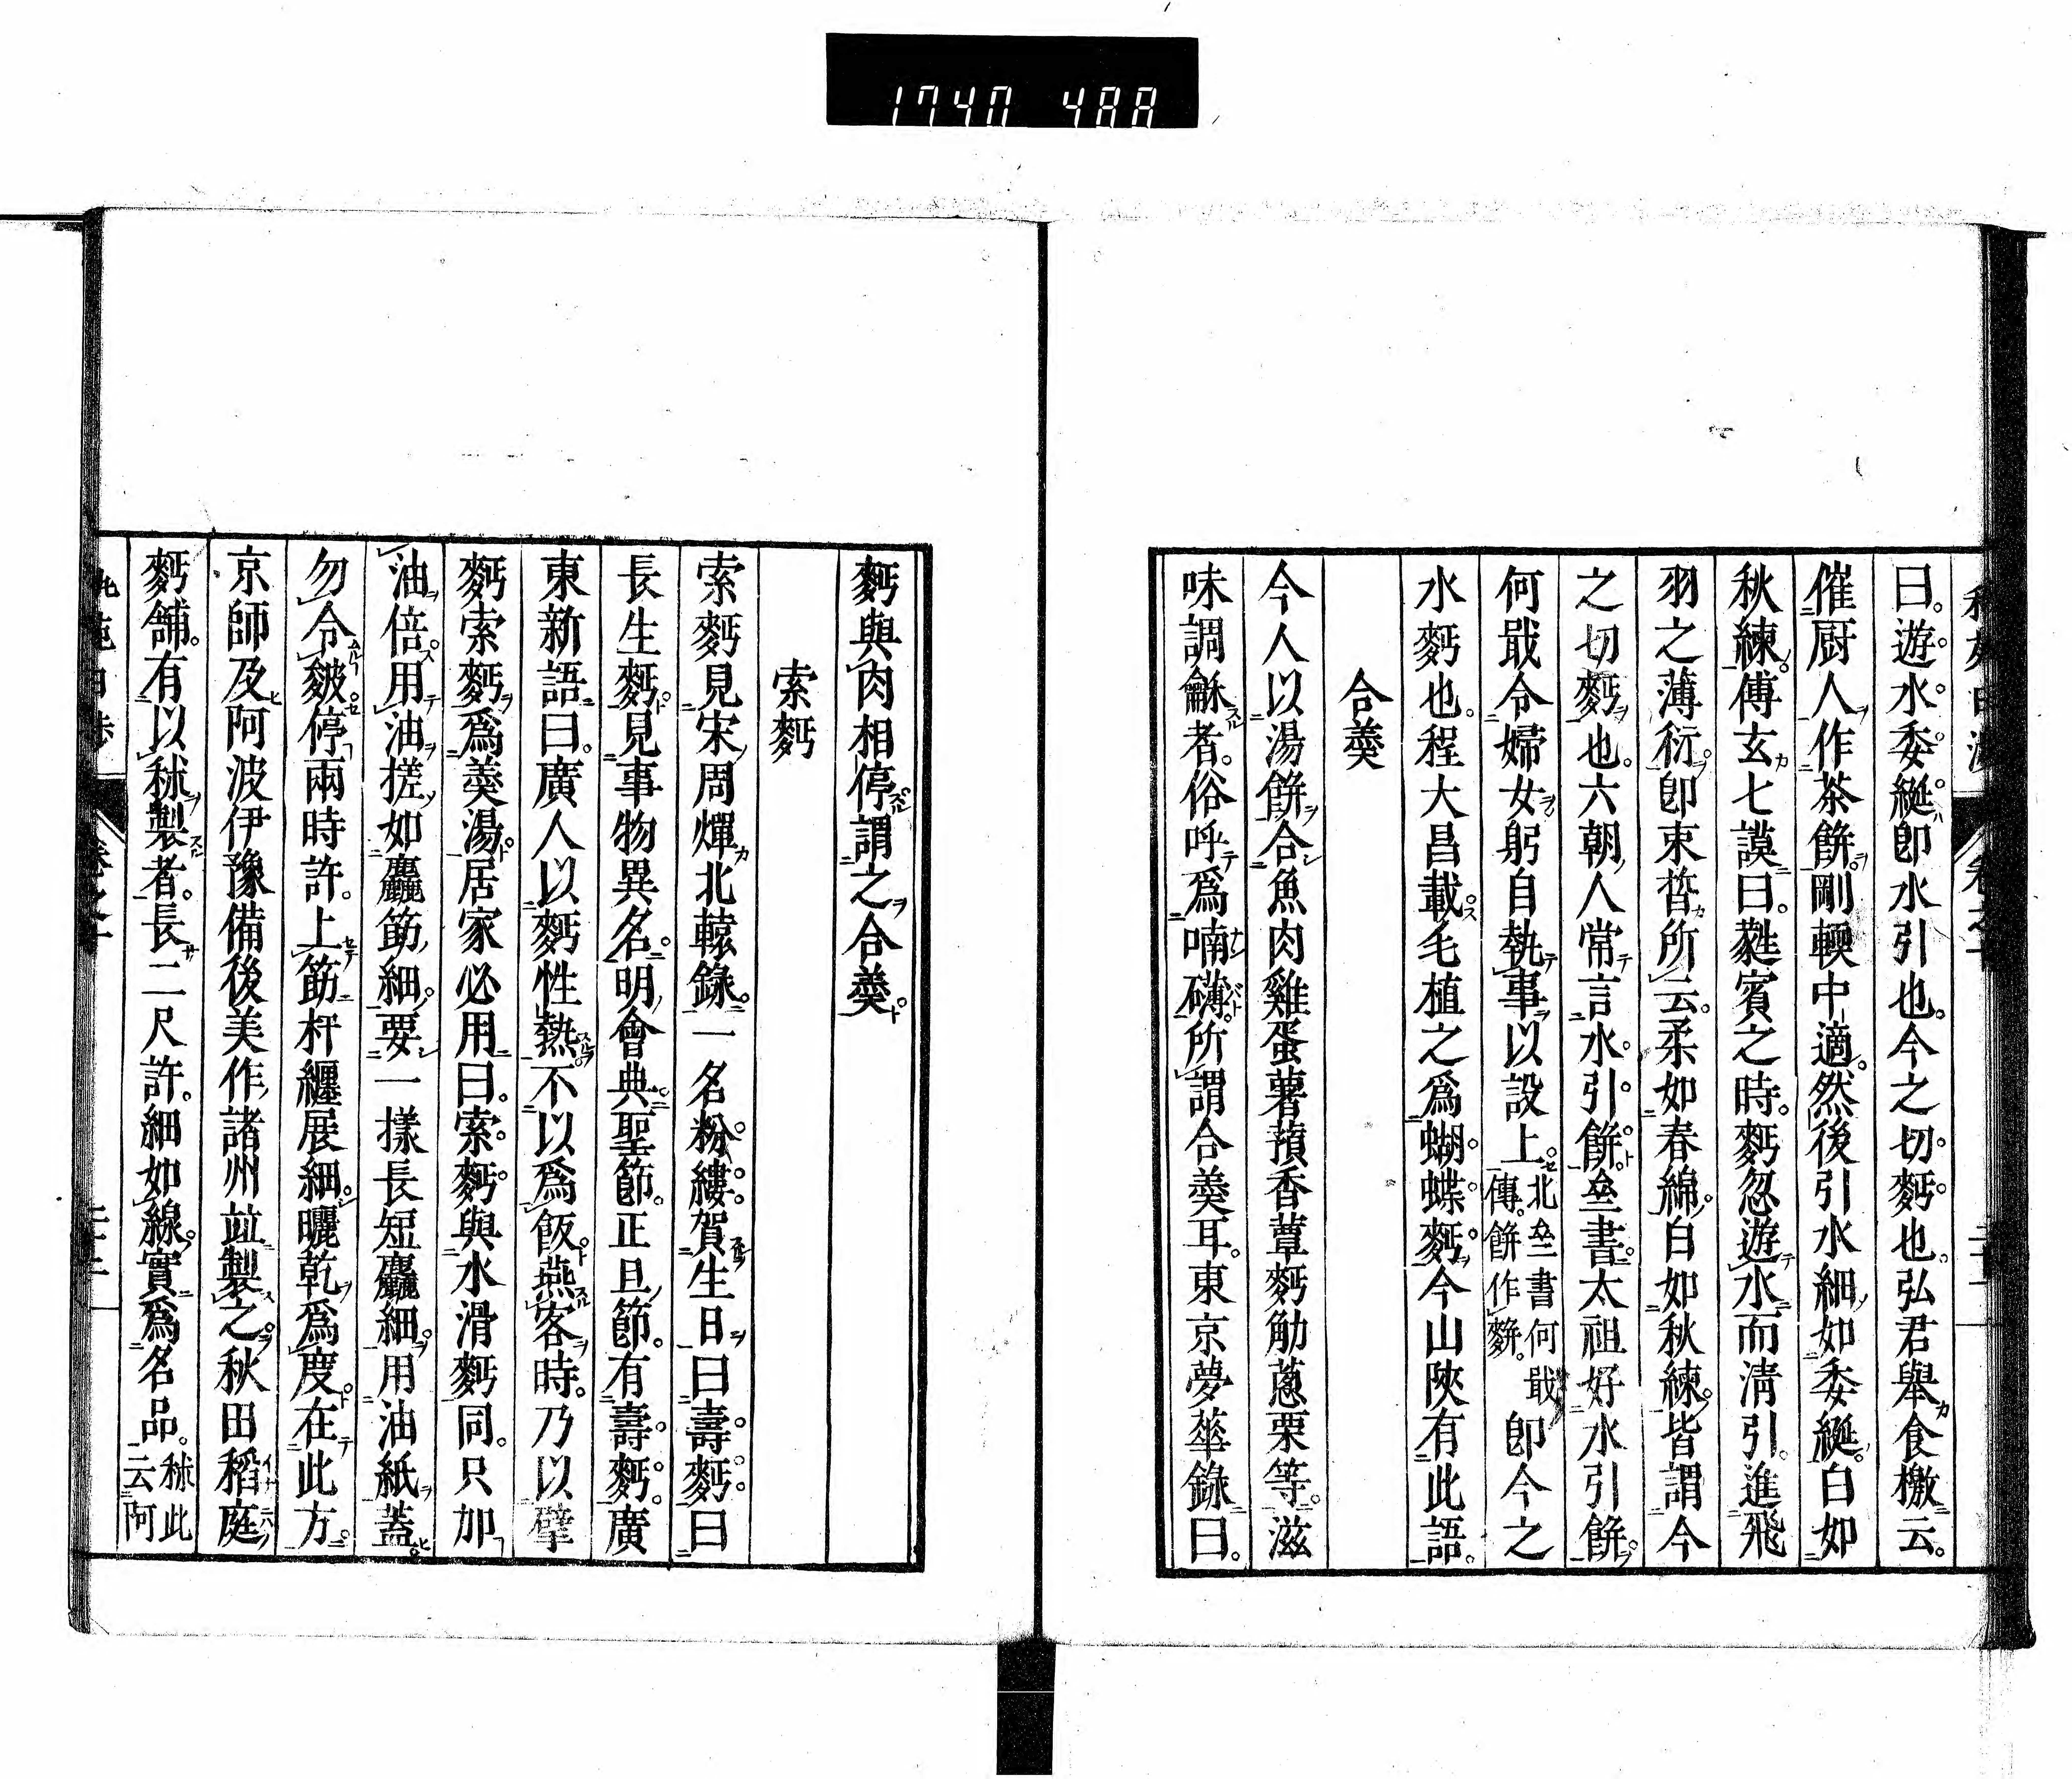 1740 488
曰。遊水委綖。卽水引也。今之切麪也。弘君舉食檄云。
催厨人作茶餅。剛輭中適。然後引水細如委綖。白如
秋練。傅玄七謨曰。蕤賓之時。麪忽遊水而淸引。進飛
羽之薄衍。卽束晳所云。柔如春綿。白如秋練。皆謂今
之切麪也。六朝人常言水引餅。㘴書太祖好水引餅。
何戢令婦女躬自執事以設上。北㘴書何戢傳。餅作䴵。卽今之
水麪也。程大昌載毛植之爲蝴蝶麪。今山陝有此語。
合羹
今人以湯餅合魚肉雞蛋薯蕷香蕈麪觔蔥栗等。滋
味調龢者。俗呼爲喃礴。所謂合羹耳。東京夢華錄曰。
麪與肉相停。謂之合羹。
索麪
索麪見宋周煇北轅錄。一名粉縷。賀生日曰壽麪。曰
長生麪。見事物異名。明會典。聖節。正旦節。有壽麪。廣
東新語曰。廣人以麪性熱。不以爲飯。燕客時。乃以擘
麪索麪爲羹湯。居家必用曰。索麪與水滑麪同。只加
油倍用。油搓如麤筯細。要一樣長短麤細。用油紙蓋。
勿令皴。停兩時許。上筯杆纏展細。曬乾爲度。在此方。
京師及阿波伊豫備後美作諸州竝製之。秋田稻庭
麪舖。有以秫製者。長二尺許。細如線。實爲名品。秫此云阿
卷之十